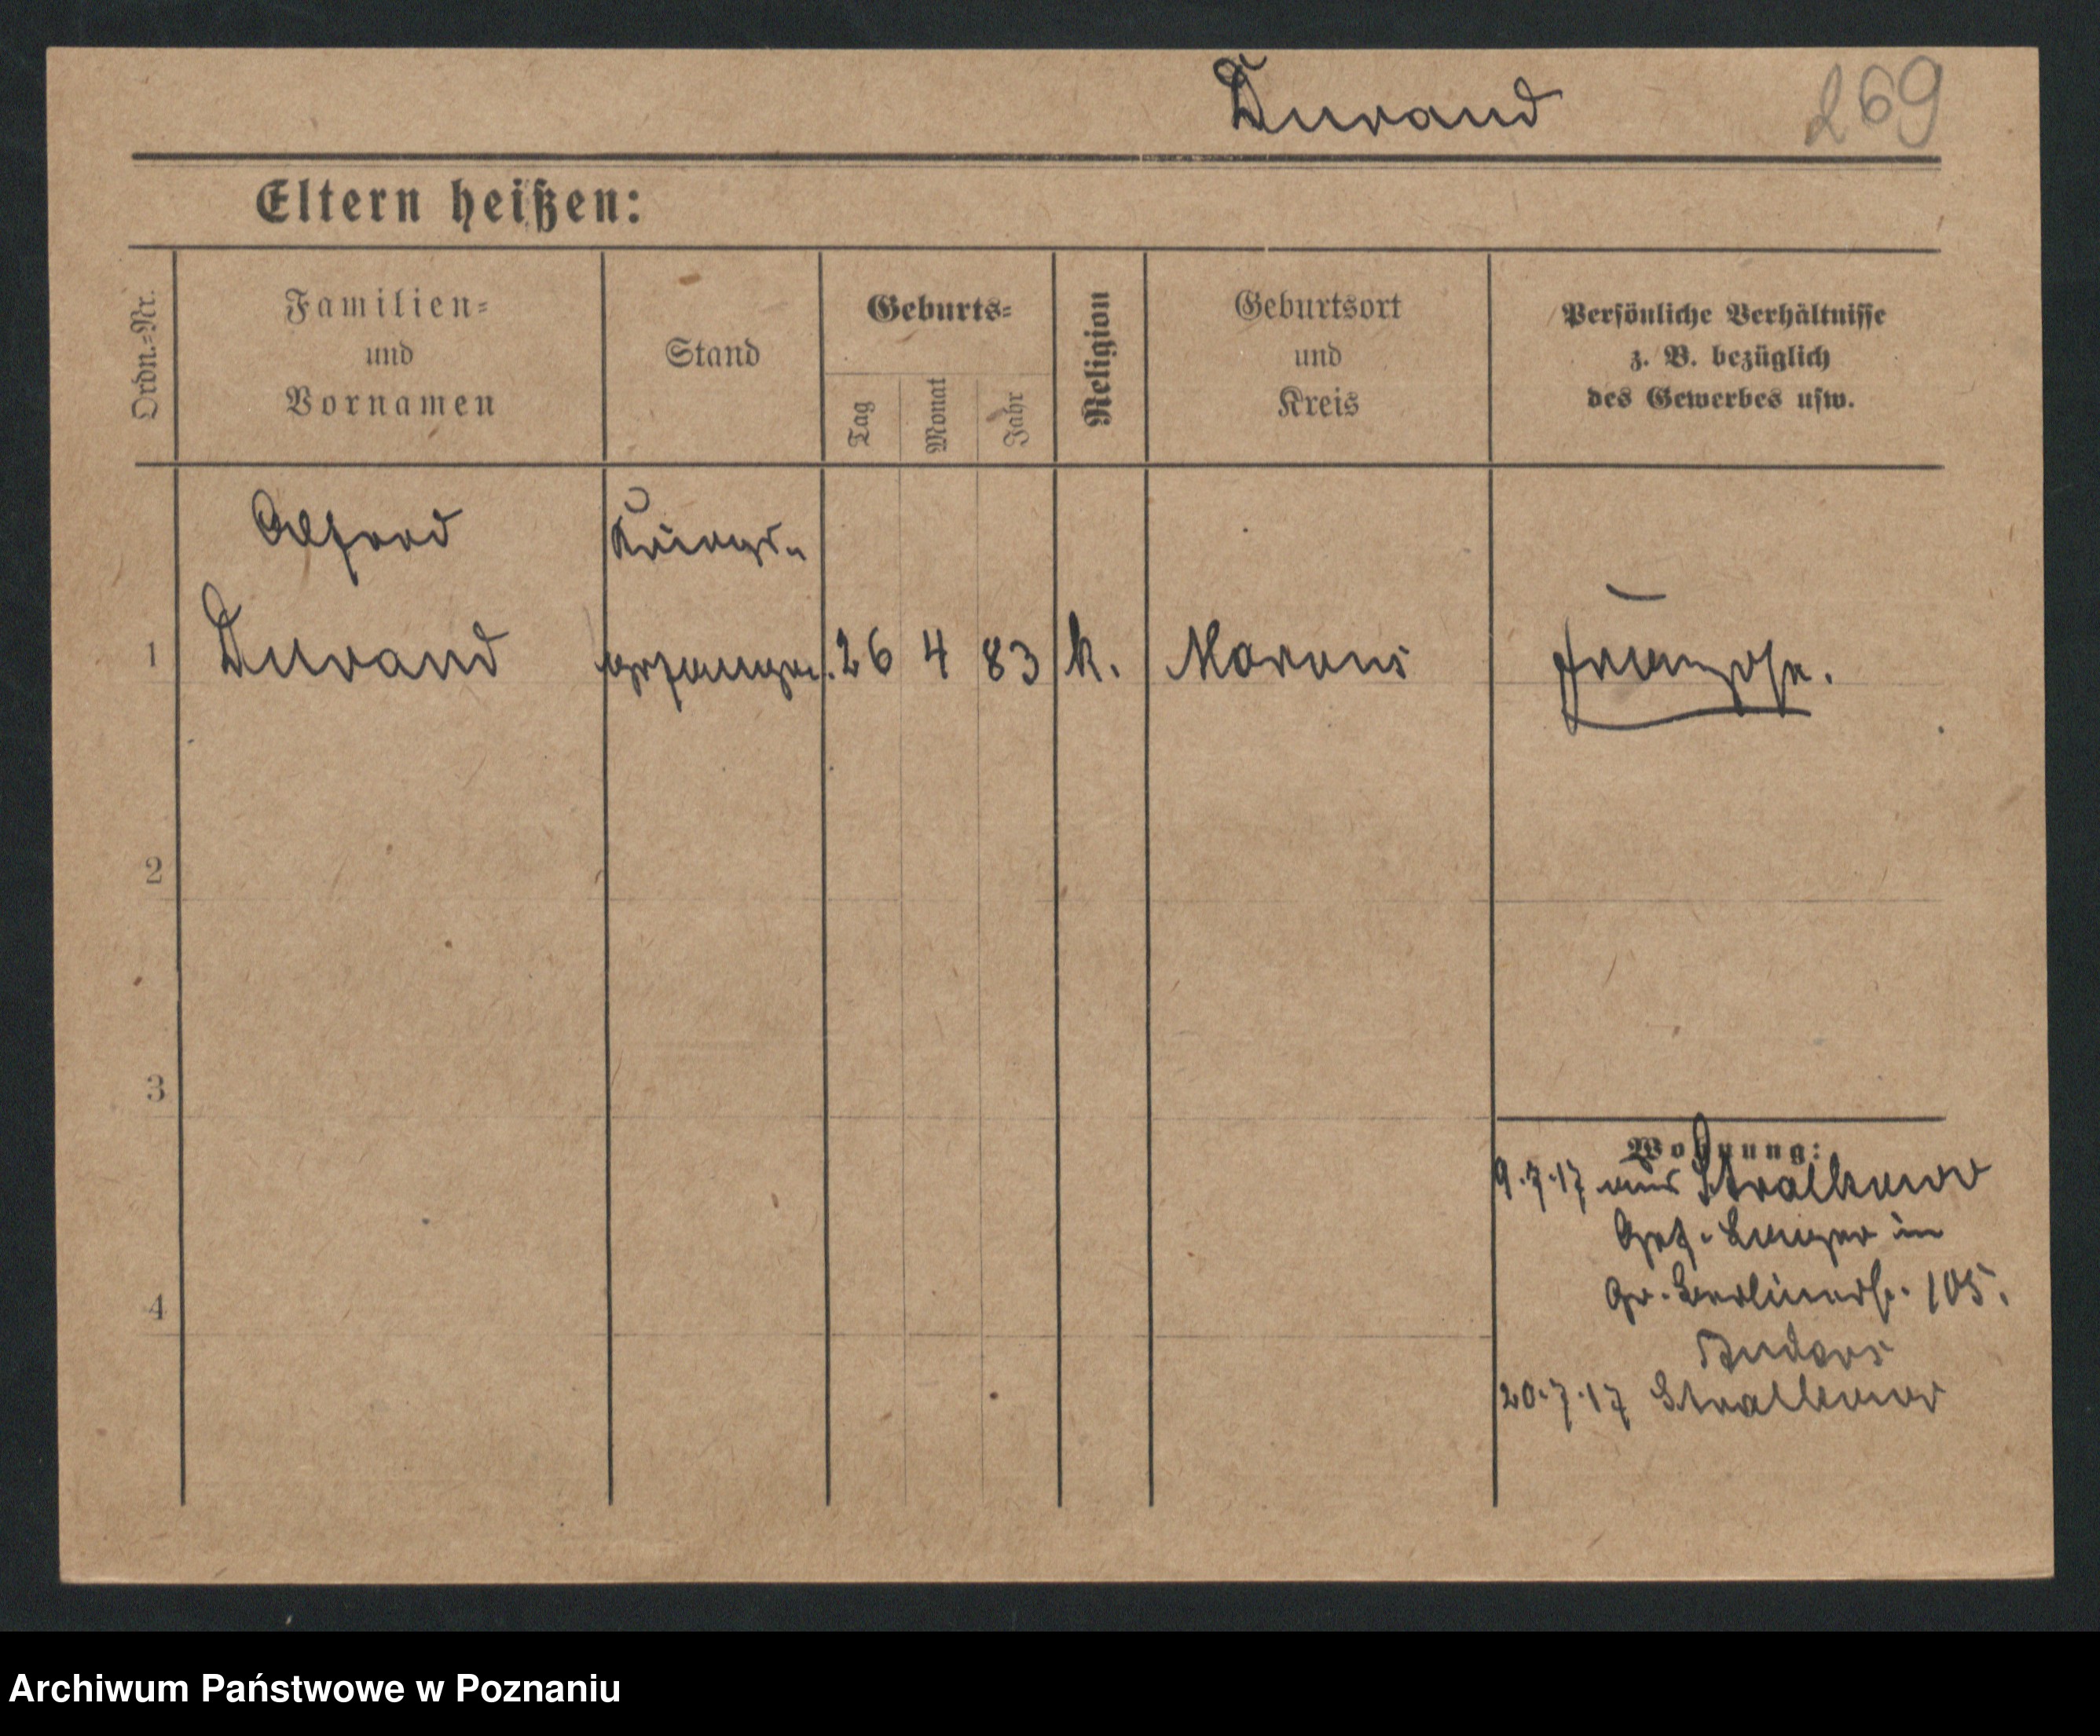 Durand
269
Eltern heißen:
Ordn.-Nr.
Familien-
und
Vornamen
Stand
Geburts-
Tag
Monat
Jahr
Religion
Geburtsort
und
Kreis
Persönliche Verhältnisse
z. B. bezüglich
des Gewerbes usw.
Alfred
Kriegs-
1
Durand
gefangen.
26
4
83
k.
Franzose.
2
3
Wohnung:
9.7.17 aus Stralkowo
Gef. Lager in
Gr. Berlinerst. 105.
4
20.7.17 Stralkowo
Archiwum Państwowe w Poznaniu